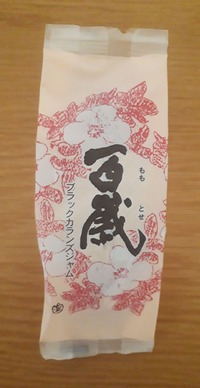 百歳
もも とせ
ブラックカランズジャム